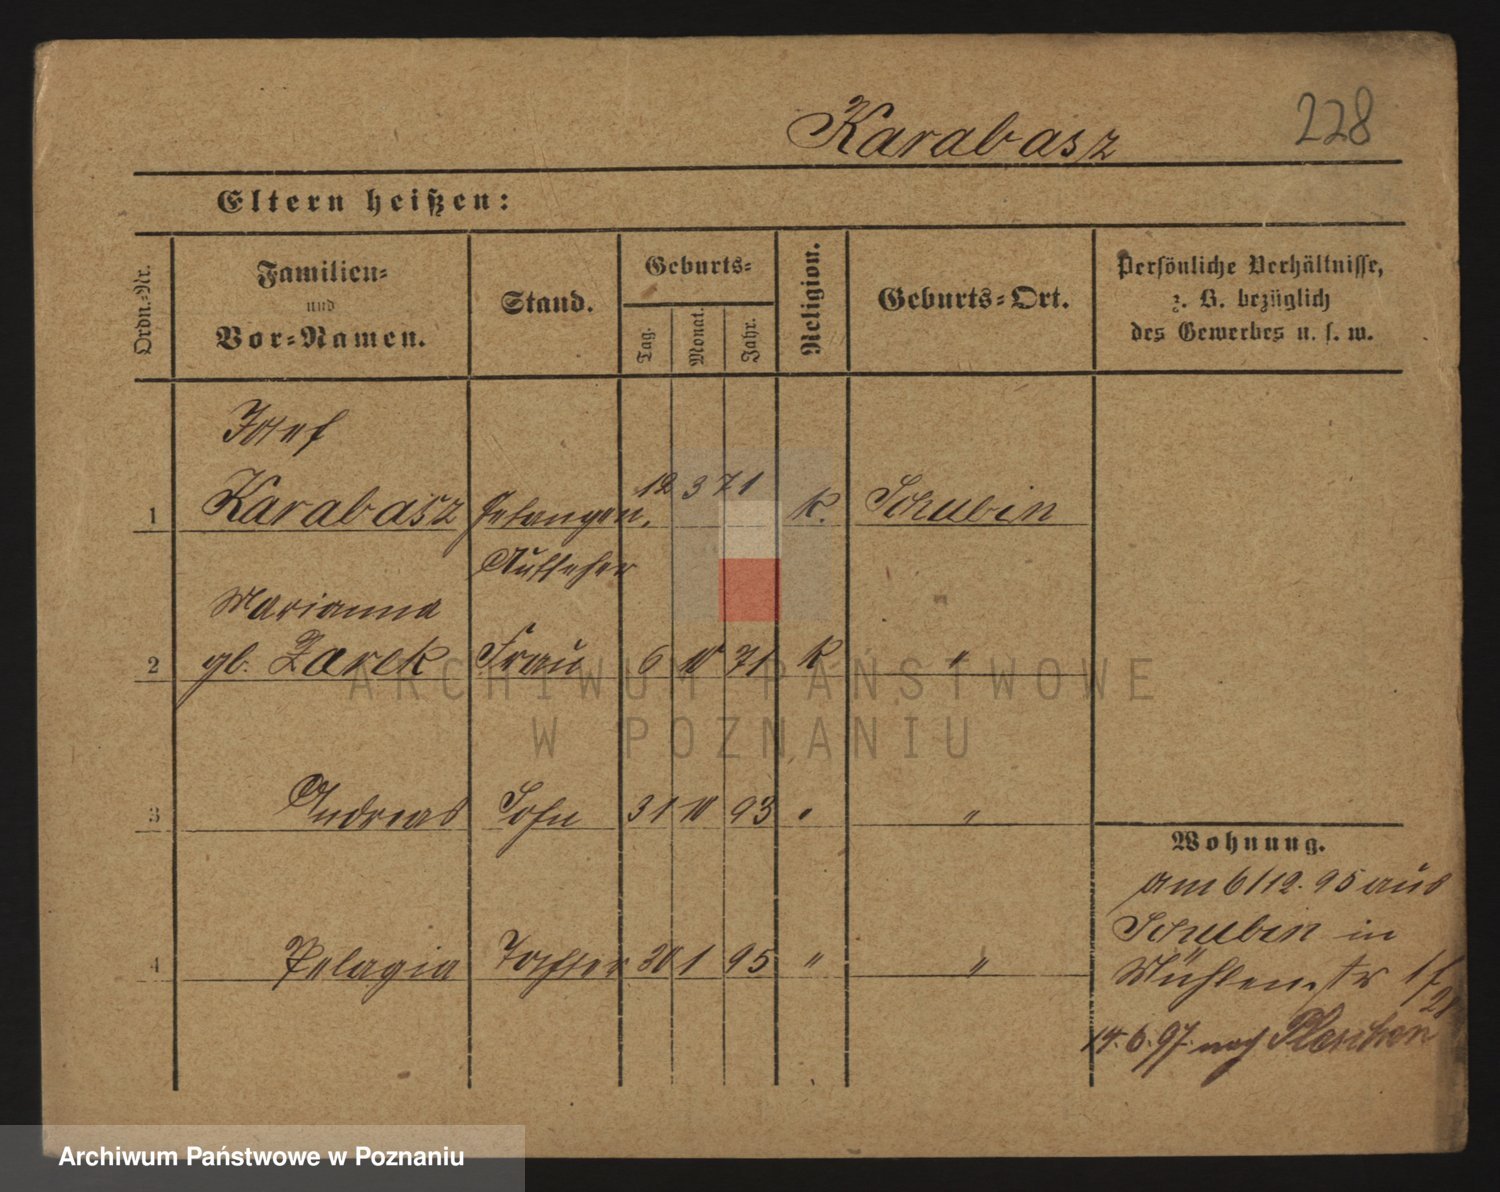 Karabasz 228
Eltern heißen:
Ordn.-Nr.
Familien-
und
Vor-Namen.
Stand.
Geburts-
Tag.
Monat.
Jahr.
Religion.
Geburts-Ort.
Persönliche Verhältnisse,
z. B. bezüglich
des Gewerbes u. s. w.
Josef
1 Karabasz Gefangen. 12 3 71 K. Schubin
Aufseher
Marianna
2 gb. Zarek Frau 6 10 71 K "
3 Andreas Sohn 31 10 93 " "
4 Pelagia Tochter 1 95 " "
Wohnung.
am 6/12. 95 aus
Schubin in
Mühlenstr
14. 6. 97. nach Pleschen
ARCHIWUM PAŃSTWOWE
W POZNANIU
Archiwum Państwowe w Poznaniu